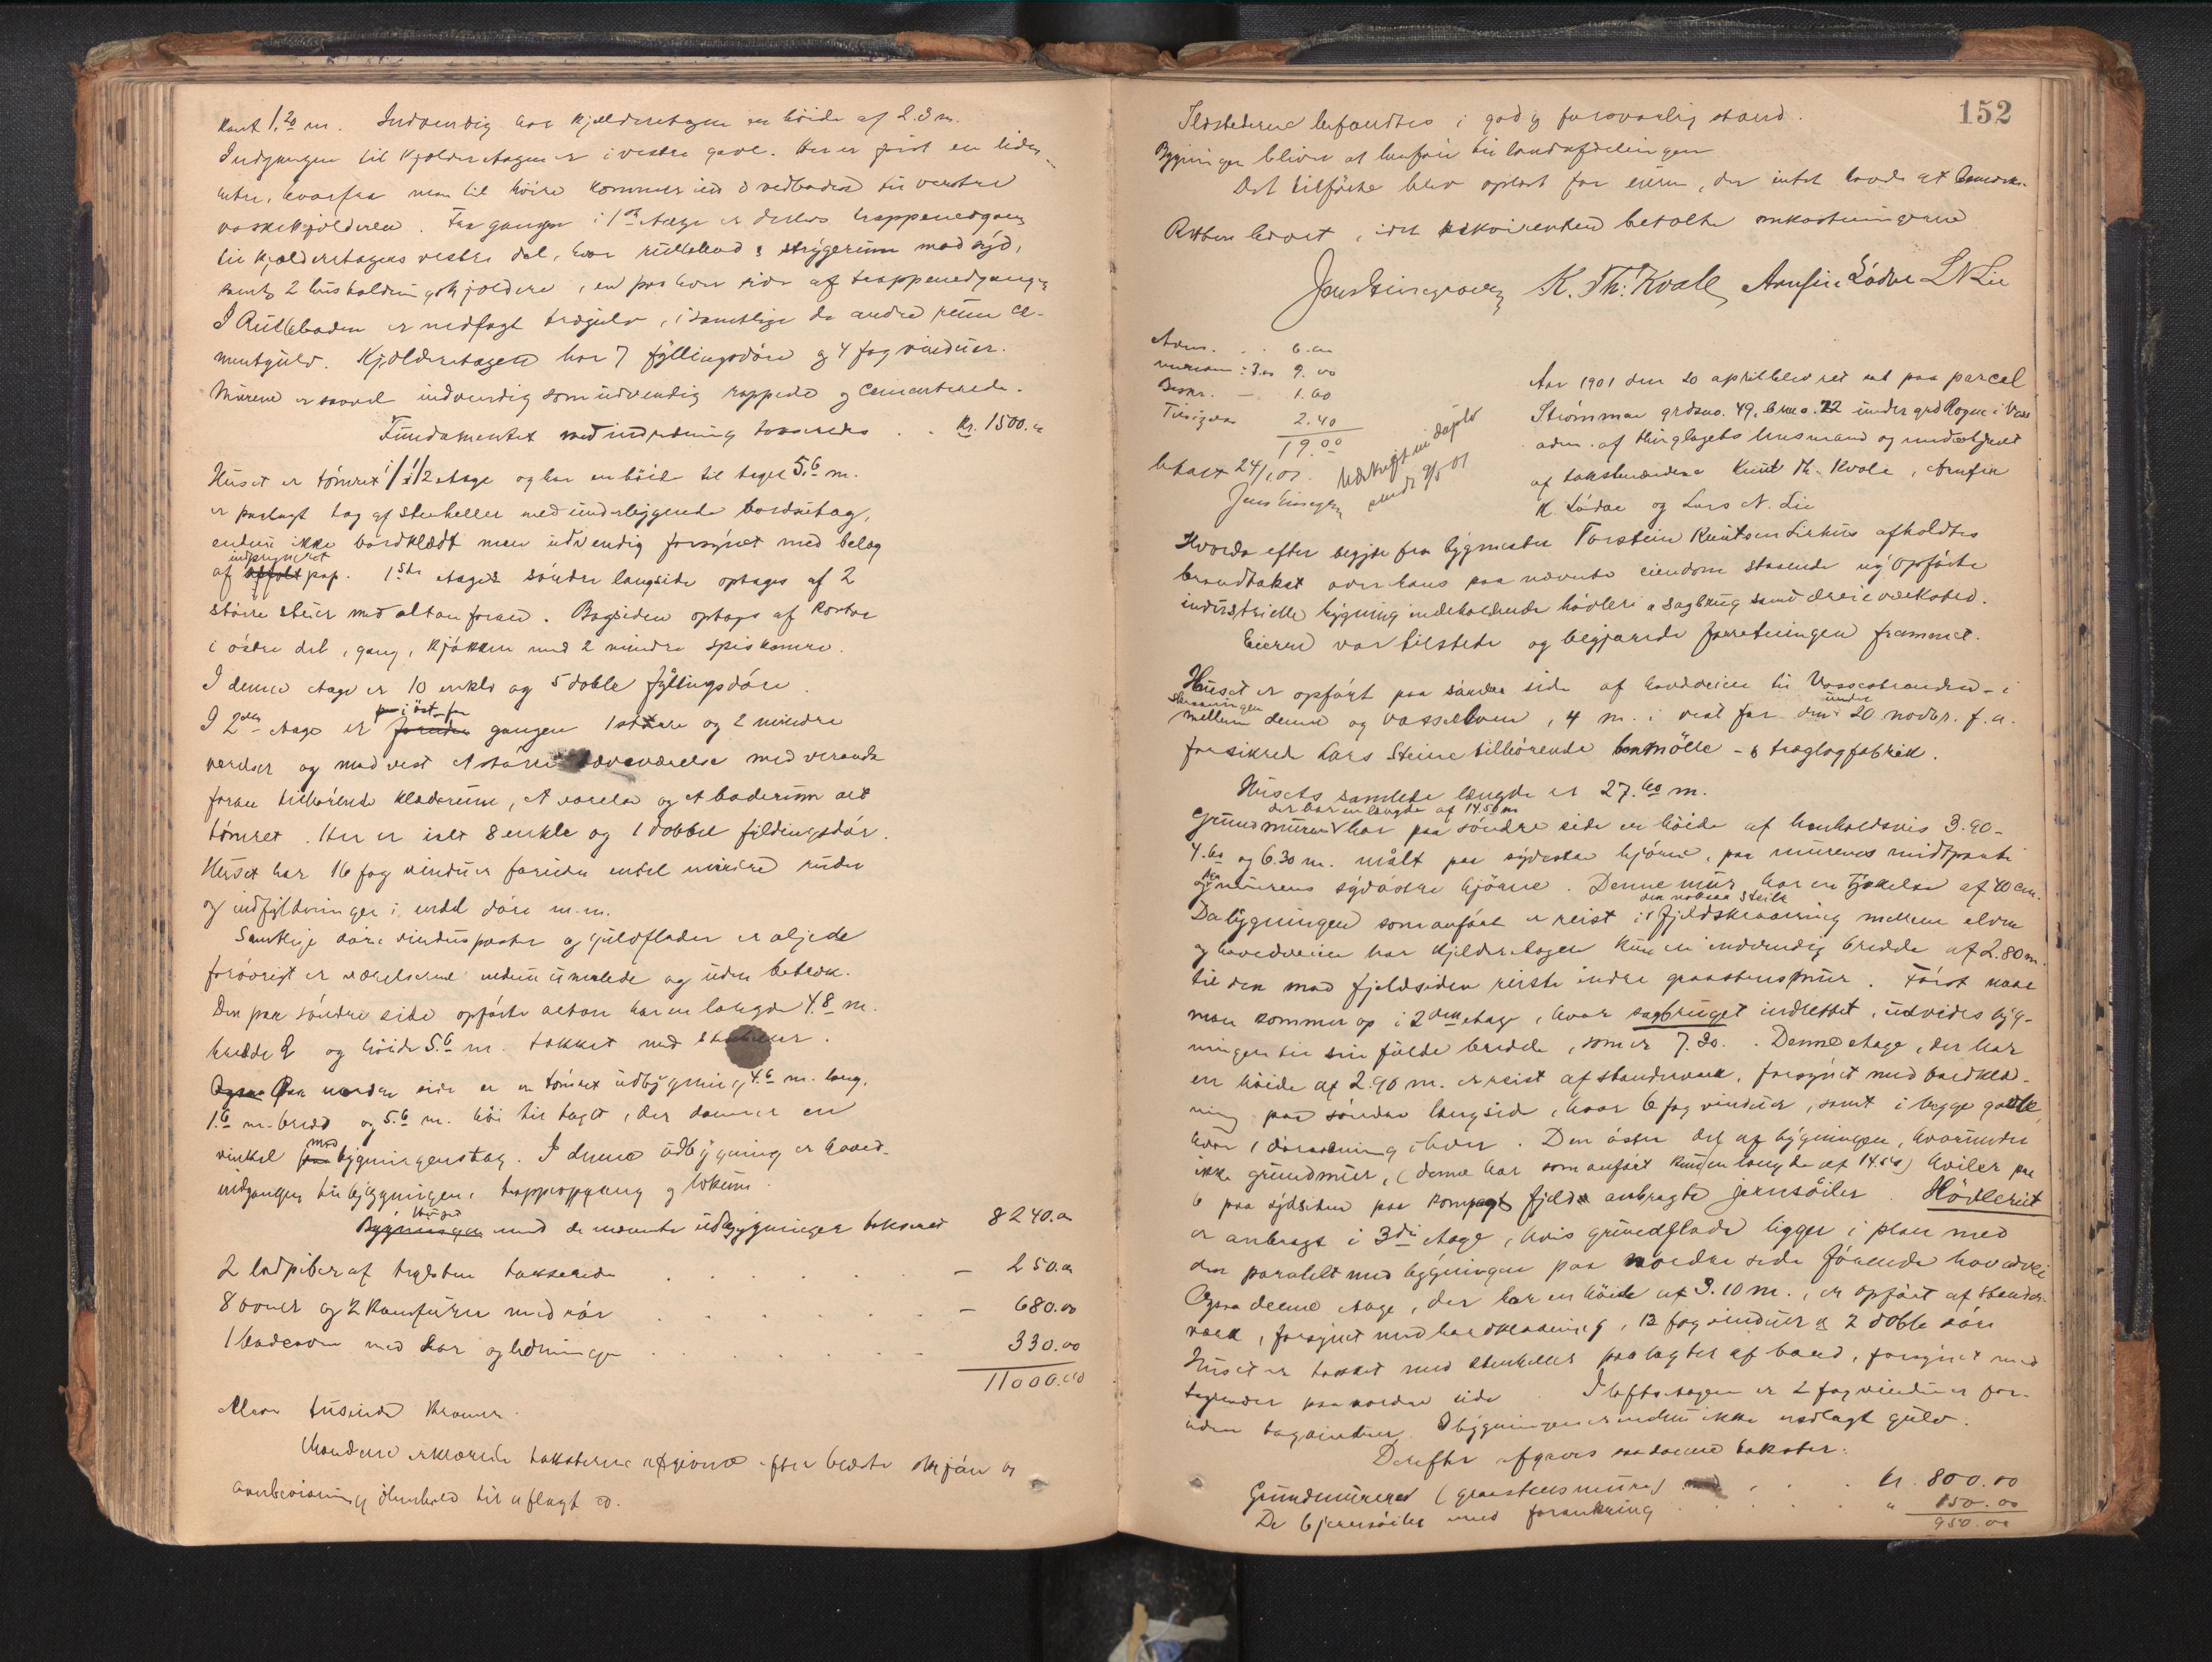 kant 1.20 m. Indvendig har Kjelderetagen en höide af 2.3 m.
Indgangen til Kjelderetagen er i vestre gavl. Her er först en liden
entre, hvorfra man til höire kommer ind i vedboden til venstre
vaskekjelderen. Fra gangen i 1ste etage er desuden trappenedgang
til Kjelderetagens vestre del, hvor rullebod & strygerum mod syd,
samt 2 husholdningskjeldere, en paa hver side af trappenedgangen
I Rulleboden er nedlagt trægulv, i samtlige de andre rum ce-
mentgulv. Kjelderetagen har 7 fyllingsdöre og 4 fag vinduer.
Murene er saavel indvendig som udvendig rappede og cementerede.
Fundamentet med indredning taxeredes . . Kr. 1500.00
Huset er tömret i 1 1/2 etage og har en höide til taget 5.6 m.
er paalagt tag af stenheller med underliggende bordsutag,
endnu ikke bordklædt men udvendig forsynet med belæg
af impregneret pap. 1ste etages söndre langside optages af 2
större stuer med altan foran. Bagsiden optages af Kontor
i östre del, gang, kjökken med 2 mindre spiskamre.
I denne etage er 10 enkle og 5 doble fyllingsdöre.
I 2den etage er i öst for gangen 1 större og 2 mindre
værelser og mod vest et större soveværelse med veranda
foran tilhörende klæderum, et værelse og et baderum alt
tömret. Her er ialt 8 enkle og 1 dobbel fyldingsdör.
Huset har 16 fag vinduer foruden endel mindre ruder
og indfyldninger i endel döre m.m.
Samtlige döre vinduesposter og gulvflader er oljede
forövrigt er værelserne endnu umalede og uden betræk.
Den paa söndre side opförte altan har en længde 4.8 m.
bredde 2 og höide 5.6 m. takket med stenheller.
Paa nordre side er en tömret udbygning 4.6 m. lang,
1.6 m. bred og 5.6 m. höi til taget, der danner en
vinkel med bygningens tag. I denne udbygning er hoved-
indgangen til bygningen, trappeopgang og lokum.
Huset med de nævnte udbygninger takseret 8240.00
2 ladpiber af teglsten takserede . . . . . — 250.00
8 ovner og 2 Komfurer med rör . . . . . — 680.00
1 badeovn med kar og ledninger . . . . . — 330.00
11000.00
Elleve tusinde Kroner.
Mændene erklærede taksterne afgivne efter bedste skjön og
overbevisning i henhold til aflagt ed.
152
Ildstederne befandtes i god og forsvarlig stand.
Bygningen bliver at henföre til landafdelingen
Det tilförte blev oplæst for eieren, der intet havde at bemærke.
Retten hævet, idet rekvirenten betalte omkostningerne
K. Th. Kvale Arnfin Lödve L N Lie
Adm. . . 6.00
mændene : 3.00 9.00
Beskr. — 1.60
Tilsigelse 2.40
19.00
betalt 24/4 01.
Udskrift in duplo
sendt 9/5 01
Aar 1901 den 20 april blev ret sat paa parcel
Strömmen grdsno. 49, bno. 22 under grd Rogne i Voss
adm. af thinglagets lensmand og medbetjent
af takstmændene Knut Th. Kvale, Arnfin
K. Lödve og Lars N. Lie
Hvorda efter begjær fra bygmester Torstein Knutsen Lirhus afholdtes
brandtakst over hans paa nævnte eiendom staaende ny opförte
industrielle bygning indeholdende hövleri & sagbrug samt dreieværksted.
Eieren var tilstede og begjærede forretningen fremmet.
Huset er opfört paa söndre side af hovedveien til Vossestranden – i
skraaningen mellem denne og Vosselven, 4 m. i vest for den under 20 novbr. f.a.
forsikred Lars Steine tilhörende benmölle – & træglogfabrik.
Husets samlede længde er 27.60 m.
Grundmuren der har en længde af 14.50 m har paa söndre side en höide af henholdsvis 3.90 –
4.60 og 6.30 m. målt paa sydvestre hjörne, paa murens midtparti
og paa murens sydöstre hjörne. Denne mur har en tykkelse af 40 cm.
Da bygningen som anfört er reist i den noksaa steile fjeldskraaning mellem elven
og hovedveien har Kjelderetagen kun en indvendig bredde af 2.80 m.
til den mod fjeldsiden reiste indre graastensmur. Först naar
man kommer op i 2den etage, hvor sagbruget indrettet, udvides byg-
ningen til sin fulde bredde, som er 7.20. Denne etage, der har
en höide af 2.90 m. er reist af standerværk, forsynet med bordklæd-
ning paa söndre langside, hvor 6 fag vinduer, samt i begge gavle
hver 1 döraabning i hver. Den östre del af bygningen, hvorunder
ikke grundmur, (denne har som anfört kun en længde af 14.50) hviler paa
6 paa sydsiden paa kompagt fjeld anbragte jernsöiler. Hövleriet
er anbragt i 3die etage, hvis grundflade ligger i plan med
den paralelt med bygningen paa nordre side förende hovedvei
Ogsaa denne etage, der har en höide af 3.10 m., er opfört af stender-
værk, forsynet med bordklædning, 12 fag vinduer & 2 doble döre
Huset er takket med stenheller paalagte af bord, forsynet med
tagrender paa nordre side. I loftsetagen er 2 fag vinduer for-
uden tagvinduer. I bygningen er endnu ikke nedlagt gulv.
Derefter afgaves saadanne takster:
Grundmuren (graastensmure) . . . Kr. 800.00
De 6 jernsöiler med forankring . . . . " 150.00
950.00